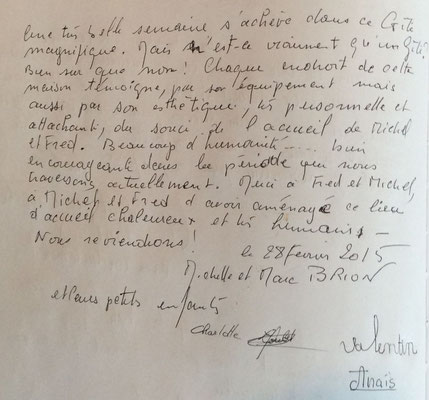 Une très belle semaine s'achève dans ce Gîte
magnifique. Mais n'est-ce vraiment qu'un Gîte?
Bien sur que non! Chaque endroit de cette
maison témoigne, par son équipement mais
aussi par son esthétique, très personnelle et
attachante, du souci de l'accueil de Michel
et Fred. Beaucoup d'humanité---- bien
encourageante dans la période que nous
traversons actuellement. Merci à Fred et Michel,
à Michel et Fred d'avoir aménagé ce lieu
d'accueil chaleureux et très humain.
Nous reviendrons! le 28 Février 2015
Michelle et Marc BRION
et leurs petits enfants
Charlotte
Valentin
Anaïs